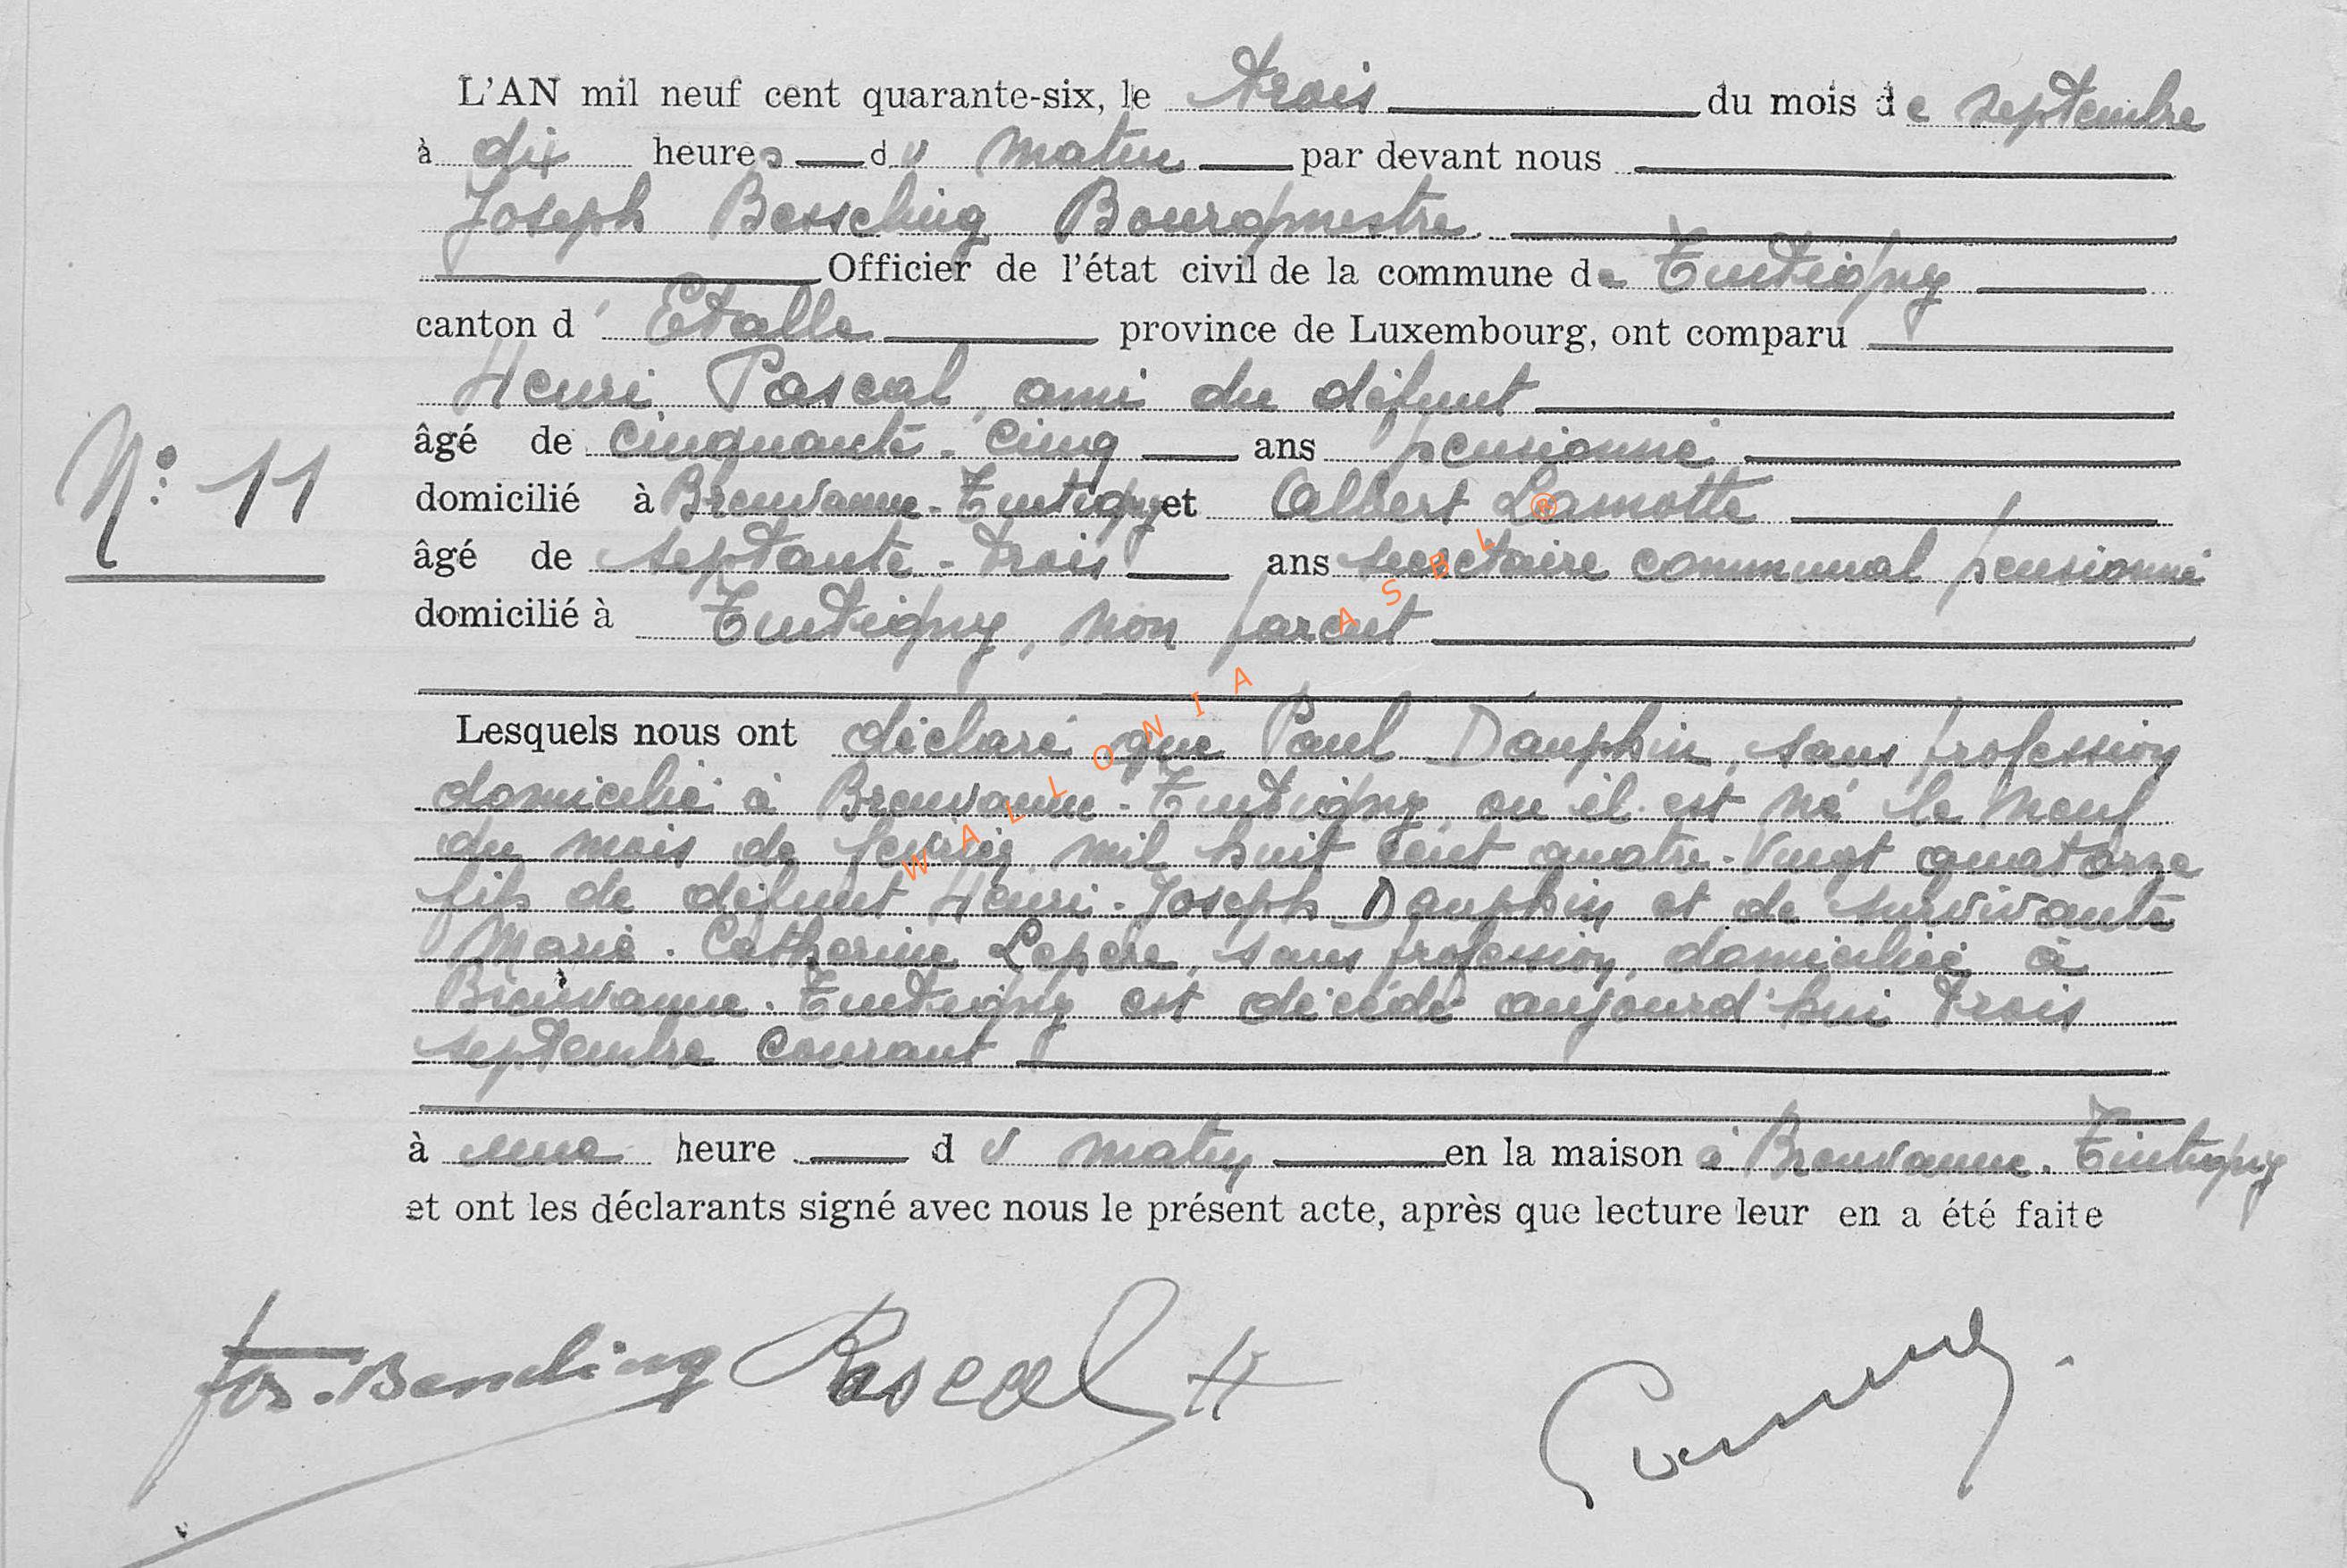 L'AN mil neuf cent quarante-six, le trois du mois de septembre
à dix heures du matin par devant nous
Joseph Bourgmestre
Officier de l'état civil de la commune de Tintigny
canton d' Etalle province de Luxembourg, ont comparu
Henri Pascal, ami du défunt
âgé de cinquante-cinq ans pensionné
N° 11
domicilié à Breuvanne-Tintigny et Albert Lamotte
âgé de septante-trois ans secrétaire communal pensionné
domicilié à Tintigny, non parent
Lesquels nous ont déclaré que Paul Dauphin, sans profession
domicilié à Breuvanne-Tintigny, ou il est né le neuf
du mois de fevrier mil huit cent quatre-vingt quatorze
fils de défunt Henri-Joseph Dauphin et de survivante
Marie-Catherine Lepère, sans profession, domiciliée à
Breuvanne-Tintigny est décédé aujourd'hui trois
septembre courant
à une heure du matin en la maison à Breuvanne-Tintigny
et ont les déclarants signé avec nous le présent acte, après que lecture leur en a été faite
Jos. Pascal H
WALLONIA ASBL ®